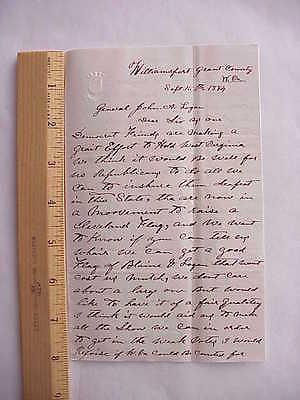 Williamsport Grant County
W.Va
Sept 11th 1884
General John A. Logan
Dear Sir as our
Democrat Friends are making a
grait Effort to Hold West Virginia
We think it Would Be Well for
us Republicans to do all we
Can to inshure them defeat
in this State, the are now in
a Movement to raise a
Cleveland Flag, and We want
to Know if you Can tell us
whair We Can get a good
Flag of Blaine & Logan that wont
Cost us Mutch, we dont Care
about a large on But would
like to have it of a fair Quality
I think it would aid us to make
all the Show we Can in order
to get in the weak Vote, I would
Rejoice if W.Va Could Be Counted for
1 2 3 4 5 6 7 8 9